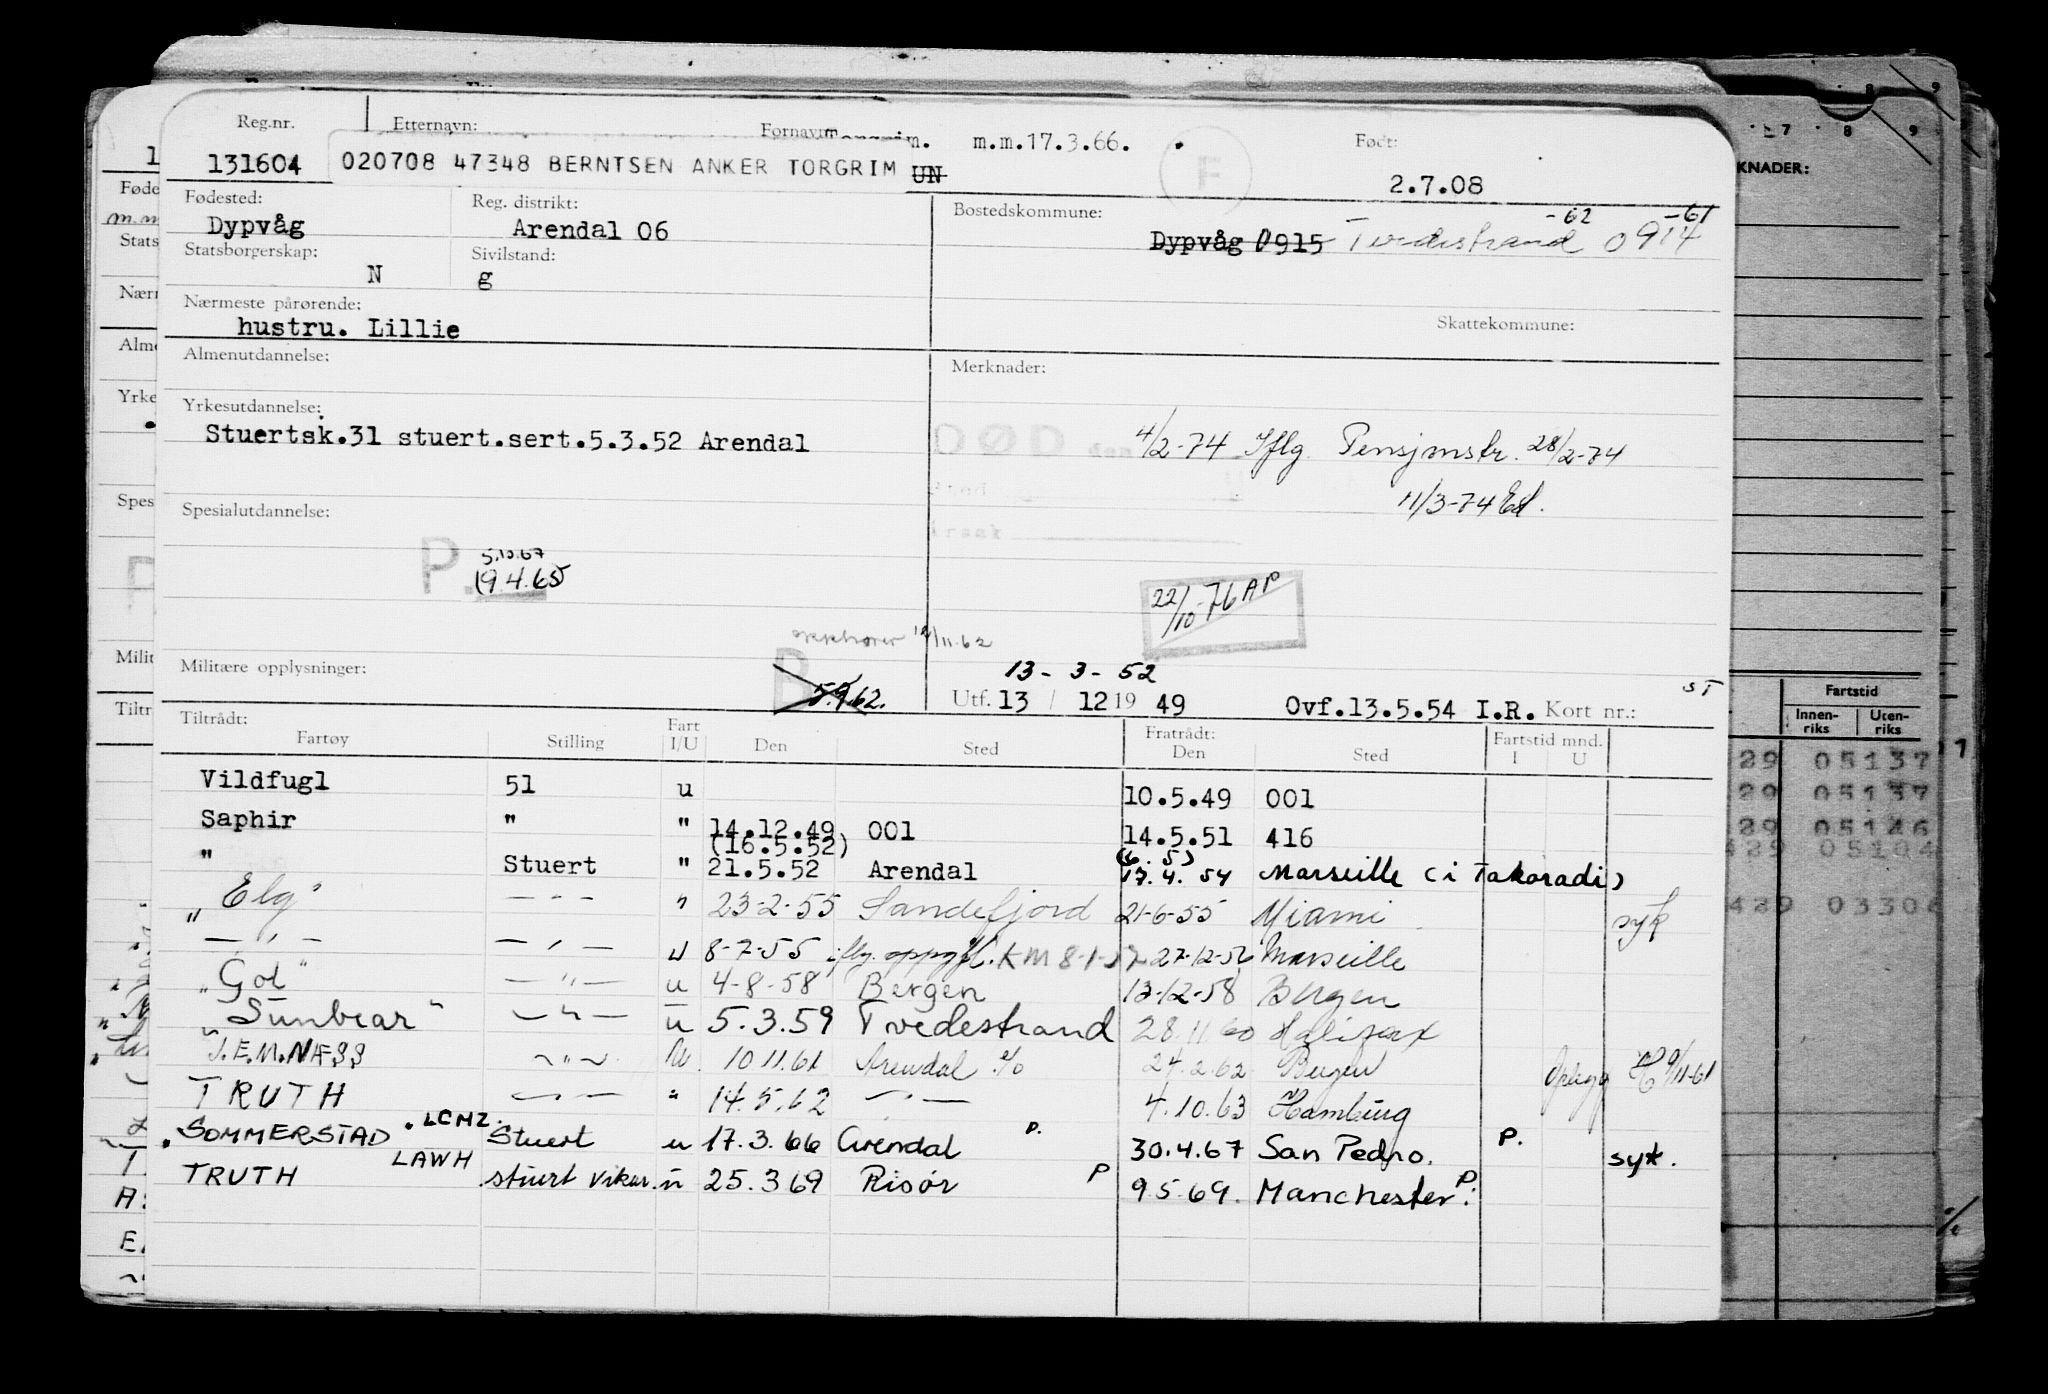 Reg.nr. Etternavn: Fornavn m.m.17.3.66. Født:
131604 020708 47348 BERNTSEN ANKER TORGRIM UN F 2.7.08
Fødested: Reg. distrikt: Bostedskommune: -62 -61
Dypvåg Arendal 06 Dypvåg 0915 Tvedestrand 0914
Statsborgerskap: Sivilstand:
N g
Nærmeste pårørende:
hustru. Lillie Skattekommune:
Almenutdannelse: Merknader:
Yrkesutdannelse:
Stuertsk.31 stuert.sert.5.3.52 Arendal DØD den 4/2-74 Iflg. Pensjonstr. 28/2-74
11/3-74 Ed.
Spesialutdannelse: Årsak
P. 5.10.67
19.4.65
22/10-76 AP
opphører 12/11.62
Militære opplysninger: P 5.9.62. 13-3-52
Utf. 13 / 12 19 49 Ovf.13.5.54 I.R. Kort nr.: ST
Tiltrådt: Fratrådt:
Fartøy Stilling Fart I/U Den Sted Den Sted Fartstid mnd. I U
Vildfugl 51 u 10.5.49 001
Saphir " " 14.12.49 001 14.5.51 416
(16.5.52) (6. 5)
" Stuert " 21.5.52 Arendal 17.4.54 Marseille (i Takoradi)
"Elg" - " - " 23-2-55 Sandefjord 21-6-55 Miami syk
- " - u 8-7-55 iflg. oppg. KM 8-1-57 27-12-56 Marseille
"Gol" - " - u 4-8-58 Bergen 13-12-58 Bergen
"Sunbear" - " - u 5.3.59 Tvedestrand 28.11.60 Halifax
J.E.M.NÆSS - " - u. 10.11.61 Arendal 24.2.62 Bergen Oplegg 9/11-61
TRUTH - " - " 14.5.62 - " - 4.10.63 Hamburg
SOMMERSTAD LCMZ. Stuert u 17.3.66 Arendal P. 30.4.67 San Pedro. P. syk.
TRUTH LAWH stuert vikar. u 25.3 69 Risør P 9.5.69. Manchester P.
KNADER:
Fartstid
Innen-riks Uten-riks
29 05137
29 05137
29 05146
29 05104
03304